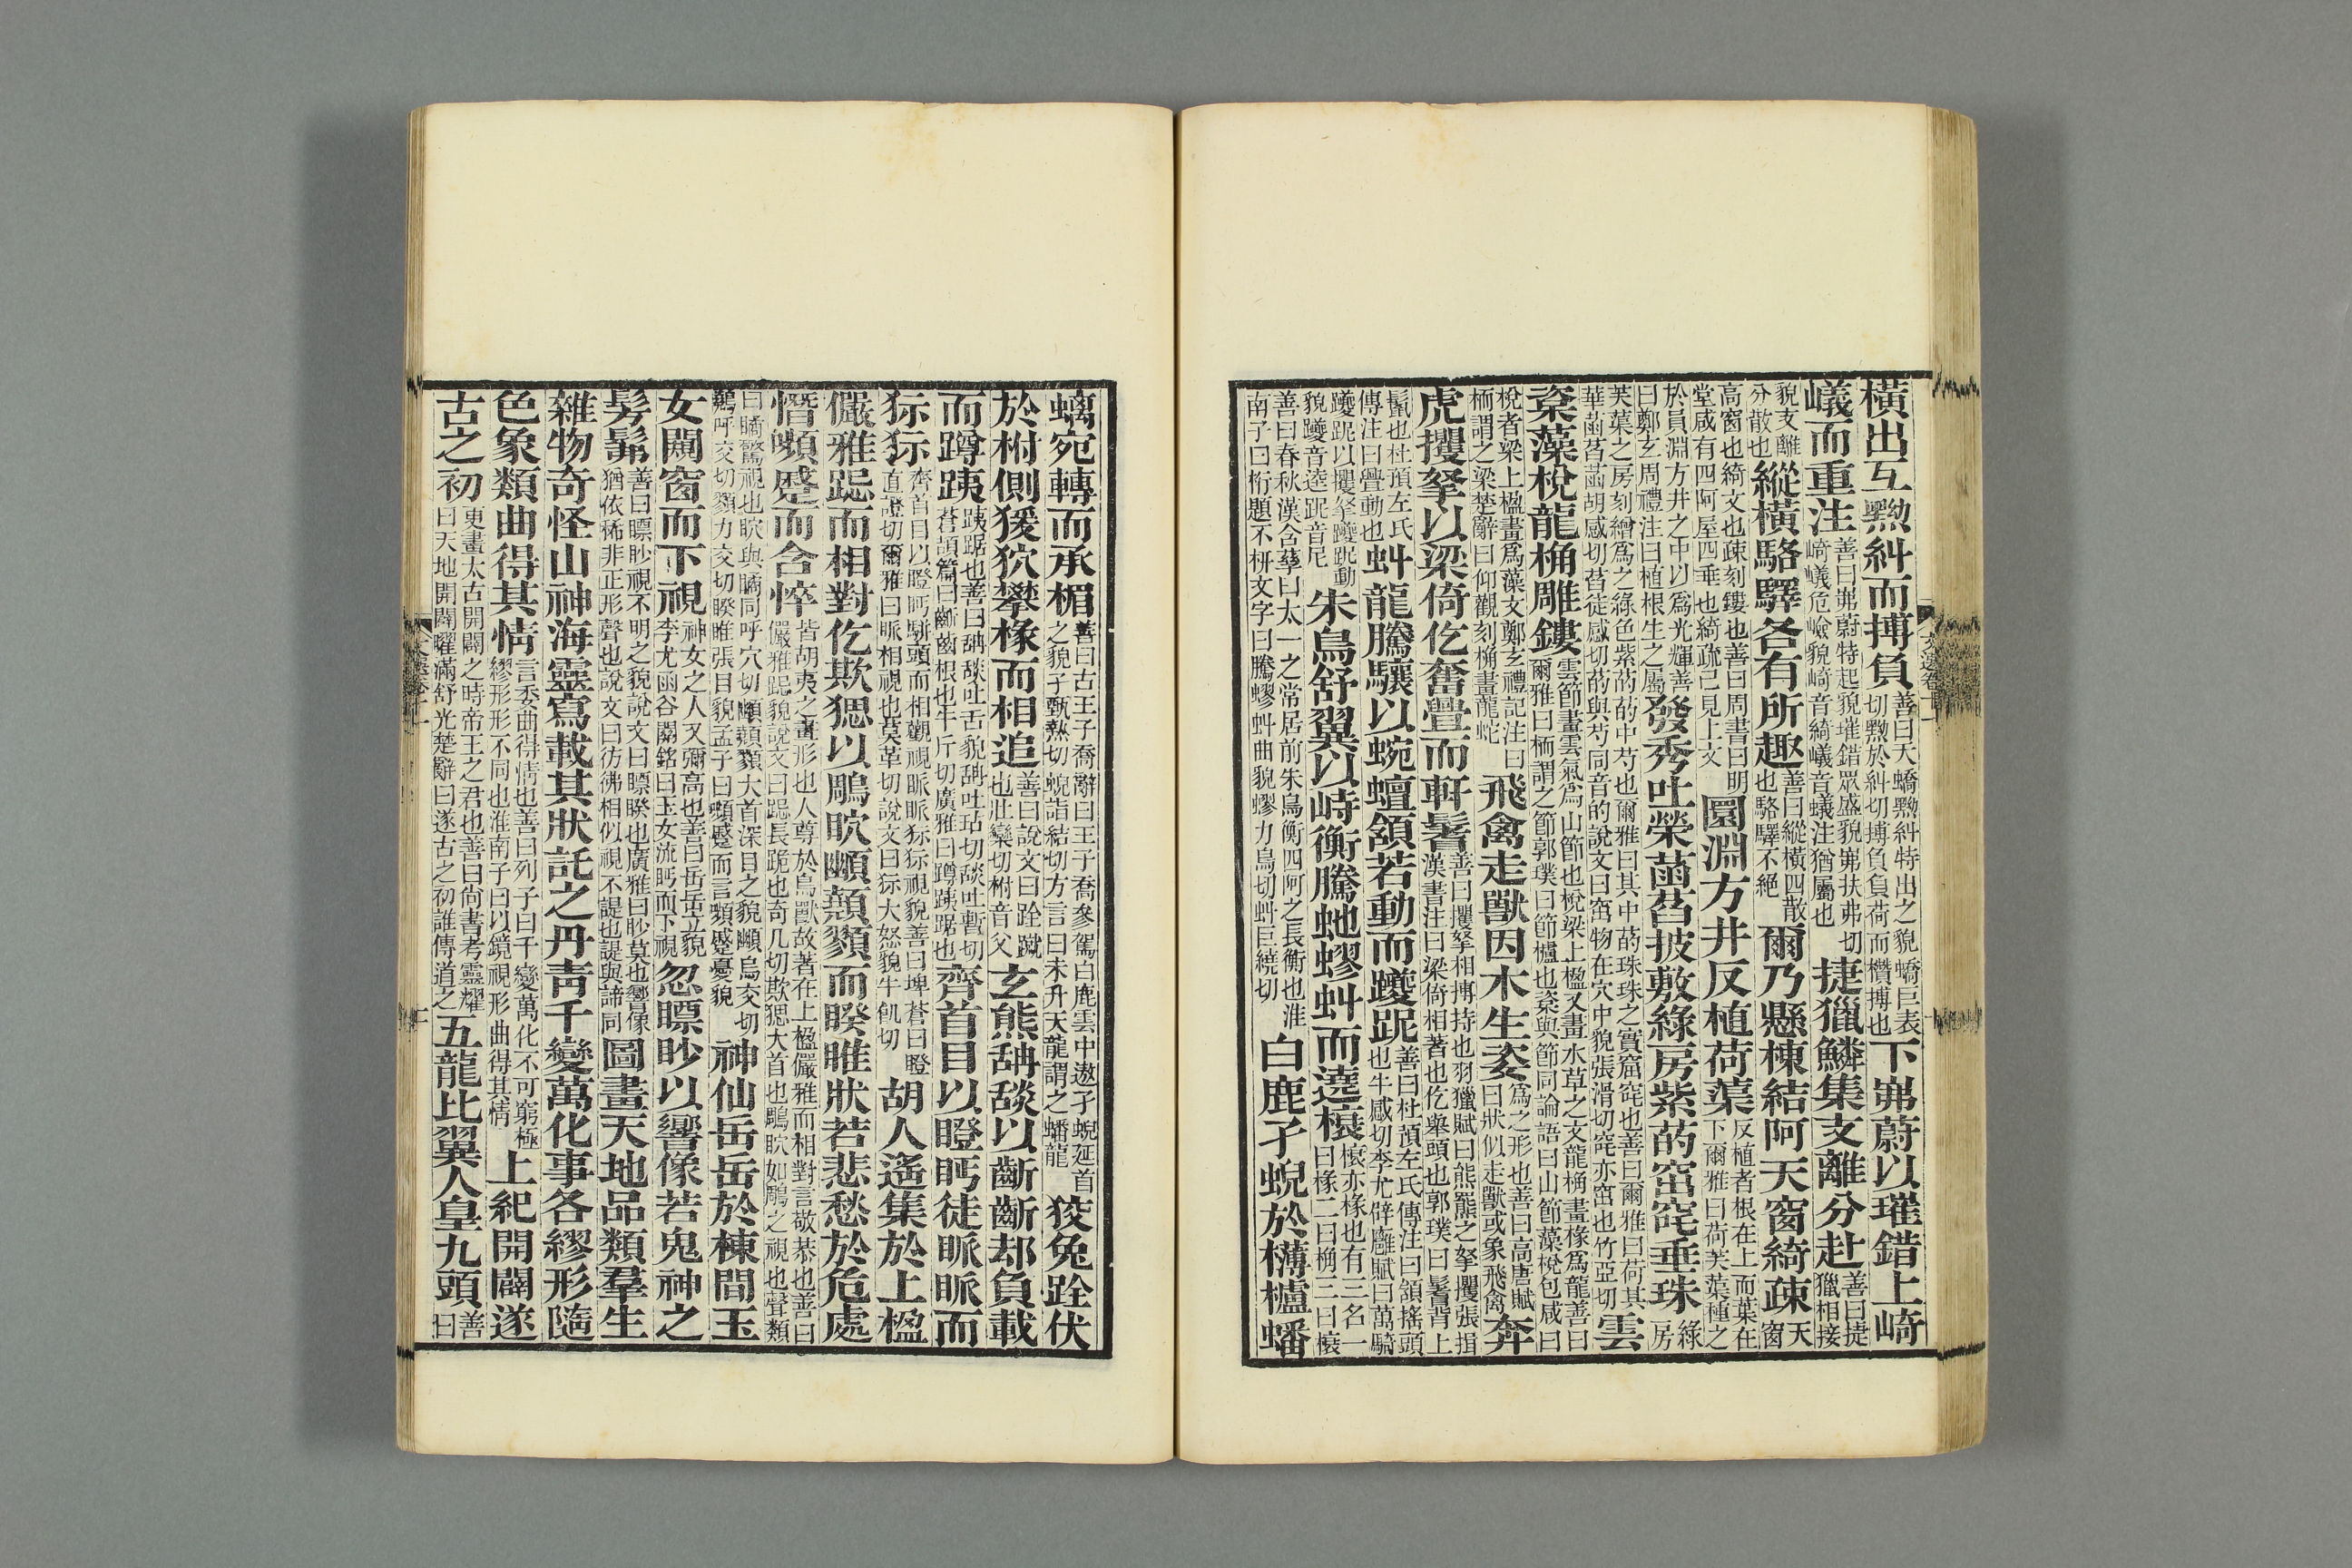 橫出互黝糾而搏負善曰夭蟜黝糾特出之貌蟜巨表切黝於糾切搏負負荷而欑搏也下岪蔚以璀錯上崎
嶬而重注善曰岪蔚特起貌璀錯眾盛貌岪扶弗切崎嶬危嶮貌崎音綺嶬音蟻注猶屬也捷獵鱗集支離分赴善曰捷獵相接
貌支離分散也縱橫駱驛各有所趣善曰縱橫四散也駱驛不絕爾乃懸棟結阿天窗綺疎天窗
高窗也綺文也疎刻鏤也善曰周書曰明堂咸有四阿屋四垂也綺疏已見上文圓淵方井反植荷蕖反植者根在上而葉在下爾雅曰荷芙蕖種之
於員淵方井之中以爲光輝善曰鄭玄周禮注曰植根生之屬發秀吐榮菡萏披敷綠房紫菂窋窕垂珠綠房
芙蕖之房刻繒爲之綠色紫菂菂中芍也爾雅曰其中菂珠珠之實窟窕也善曰爾雅曰荷其華菡萏菡胡感切萏徒感切菂與芍同音的說文曰窋物在穴中貌張滑切窕亦窋也竹亞切雲
楶藻梲龍桷雕鏤雲節畫雲氣爲山節也梲梁上楹又畫水草之文龍桷畫椽爲龍善曰爾雅曰栭謂之節郭璞曰節櫨也楶與節同論語曰山節藻梲包咸曰
梲者梁上楹畫爲藻文鄭玄禮記注曰栭謂之梁楚辭曰仰觀刻桷畫龍蛇飛禽走獸因木生姿爲之形也善曰高唐賦曰狀似走獸或象飛禽奔
虎攫挐以梁倚仡奮舋而軒鬐善曰攫挐相搏持也羽獵賦曰熊羆之挐攫張揖漢書注曰梁倚相著也仡舉頭也郭璞曰鬐背上
鬣也杜預左氏傳注曰舋動也虯龍騰驤以蜿蟺頷若動而躨跜善曰杜預左氏傳注曰頷搖頭也牛感切李尤辟雍賦曰萬騎
躨跜以攫挐躨跜動貌躨音逵跜音尼朱鳥舒翼以峙衡騰虵蟉虯而遶榱榱亦椽也有三名一曰椽二曰桷三曰榱
善曰春秋漢含孳曰太一之常居前朱鳥衡四阿之長衡也淮南子曰桁題不枅文字曰騰蟉虯曲貌蟉力鳥切虯巨繞切白鹿孑蜺於欂櫨蟠
螭宛轉而承楣善曰古王子喬辭曰王子喬參駕白鹿雲中遨孑蜺延首之貌子甄熱切蜺詣結切方言曰未升天龍謂之蟠龍狡兔跧伏
於柎側猨狖攀椽而相追善曰說文曰跧蹴也壯攣切柎音父玄熊舑舕以齗齗却負載
而蹲跠跠踞也善曰舑舕吐舌貌舑吐玷切舕吐暫切蒼頡篇曰齗齒根也牛斤切廣雅曰蹲跠踞也齊首目以瞪眄徒眽眽而
狋狋齊首目以瞪眄駢頭而相觀視眽眽狋狋視貌善曰埤蒼曰瞪直證切爾雅曰眽相視也莫革切說文曰狋犬怒貌牛飢切胡人遙集於上楹
儼雅跽而相對仡欺䫥以鵰䀏䫜顟而睽睢狀若悲愁於危處
憯嚬蹙而含悴皆胡夷之畫形也人尊於鳥獸故著在上楹儼雅而相對言敬恭也善曰儼雅跽貌說文曰跽長跪也奇几切欺䫥大首也鵰䀏如鵰之視也聲類
曰䁱驚視也䀏與䁱同呼穴切䫜顟大首深目之貌䫜烏交切䫜呼交切顟力交切睽睢張目貌孟子曰嚬蹙而言嚬蹙憂貌神仙岳岳於棟間玉
女闚窗而下視神女之人又彌高也善曰岳岳立貌李尤函谷關銘曰玉女流眄而下視忽瞟眇以響像若鬼神之
髣髴善曰瞟眇視不明之貌說文曰瞟瞭也廣雅曰眇莫也響像猶依稀非正形聲也說文曰彷彿相似視不諟也諟與諦同圖畫天地品類羣生
雜物奇怪山神海靈寫載其狀託之丹青千變萬化事各繆形隨
色象類曲得其情言委曲得情也善曰列子曰千變萬化不可窮極繆形形不同也淮南子曰以鏡視形曲得其情上紀開闢遂
古之初更畫太古開闢之時帝王之君也善曰尚書考靈耀曰天地開闢曜滿舒光楚辭曰遂古之初誰傳道之五龍比翼人皇九頭善曰